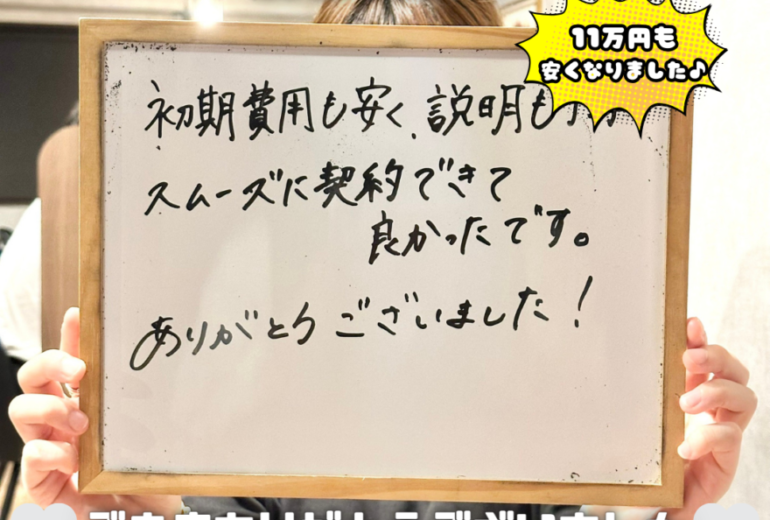 11万円も
安くなりました♪
初期費用も安く、説明も
スムーズに契約できて
良かったです。
ありがとうございました!